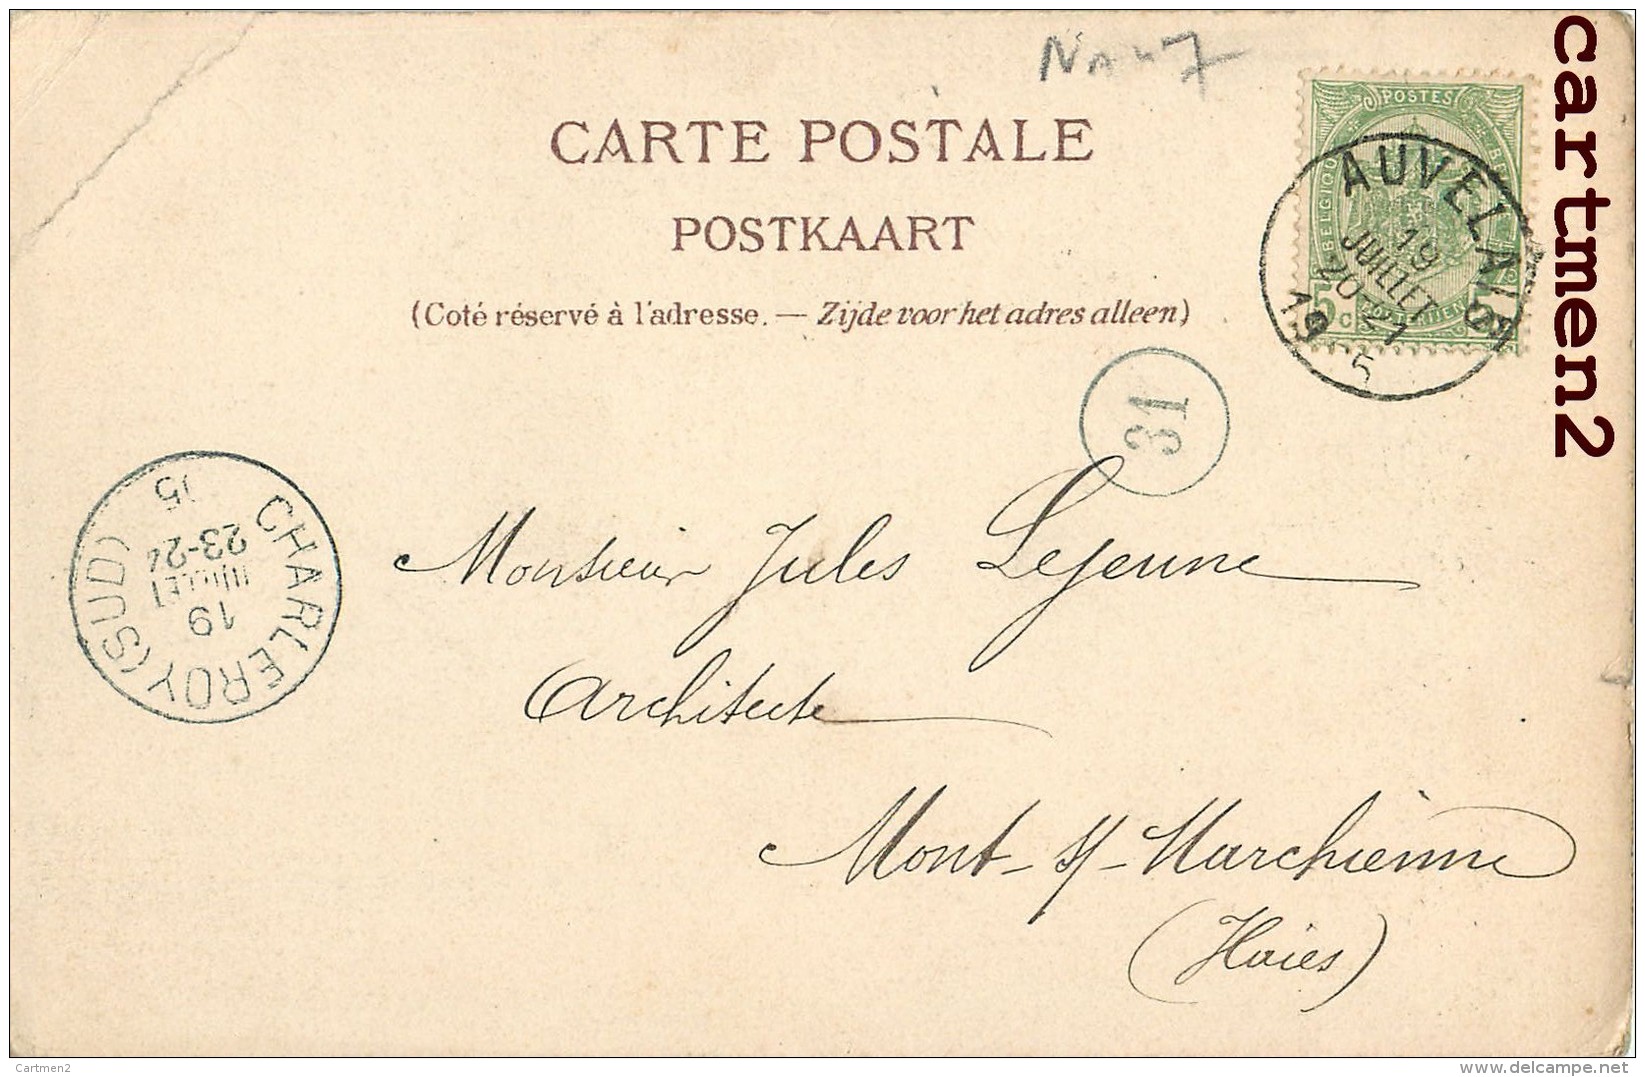 CARTE POSTALE
POSTKAART
(Coté réservé à l'adresse. — Zijde voor het adres alleen)
POSTES
BELGIQUE
5 c
AUVELAIS
19
JUILLET
20-21
19 5
31
CHARLEROY (SUD)
19
JUILLET
23-24
05
Monsieur Jules Lejeune
Architecte
Mont-s/-Marchienne
(Haies)
cartmen2
Cartmen2
www.delcampe.net